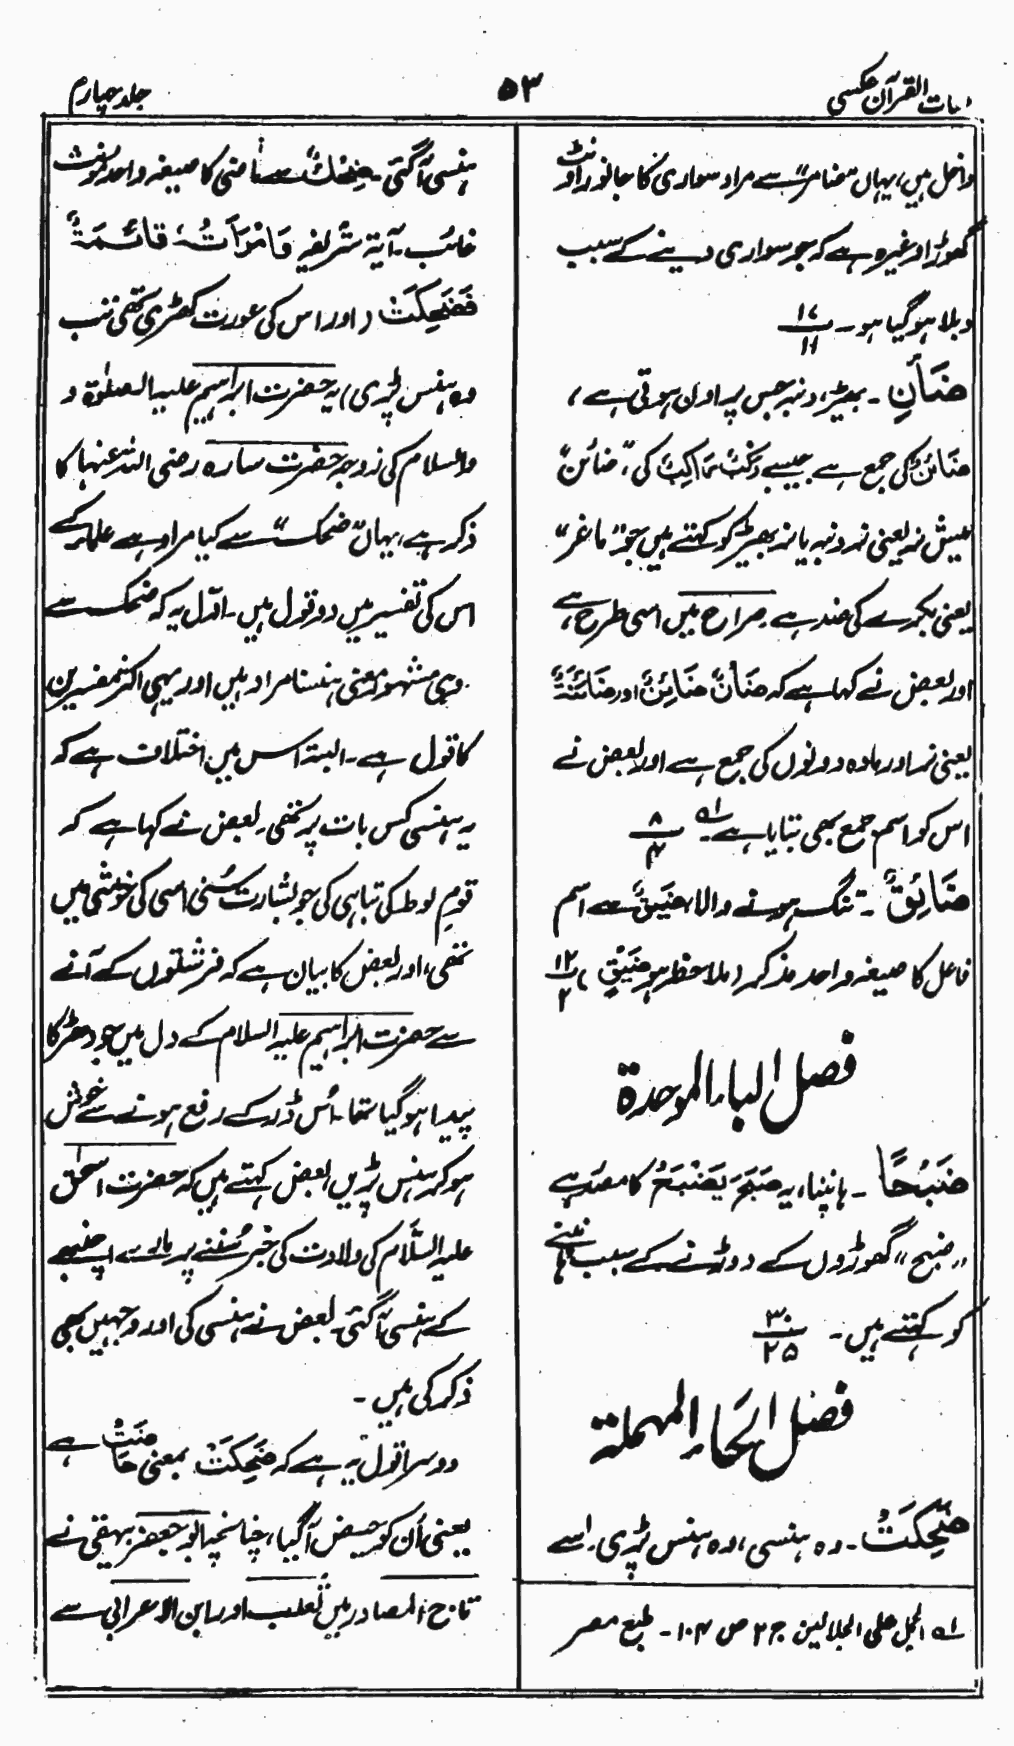 لغات القرآن عکسی
۵۳
جلد چہارم
داخل ہیں، یہاں "ضامر" سے مراد سواری کا جانور اونٹ
گھوڑا وغیرہ ہے کہ جو سواری دینے کے سبب
دبلا ہو گیا ہو۔ ۱۷/۱۱
ضَأْنِ ۔ بھیڑ، دنبہ جس پر اون ہوتی ہے،
ضَائِنٌ کی جمع ہے جیسے رَکْبٌ رَاکِبٌ کی، "ضائن"
میش نر یعنی نر دنبہ یا نر بھیڑ کو کہتے ہیں جو "ماعز"
یعنی بکرے کی ضد ہے۔ صراح میں اسی طرح ہے،
اور بعض نے کہا ہے کہ ضَأْنٌ ضَائِنٌ اور ضَائِنَةٌ
یعنی نر اور مادہ دونوں کی جمع ہے اور بعض نے
اس کو اسم جمع بھی بتایا ہے۔ ؎۱ ۸/۴
ضَائِقٌ ۔ تنگ ہونے والا، ضَیْقٌ سے اسم
فاعل کا صیغہ واحد مذکر (ملاحظہ ہو ضَیْقٍ) ۱۲/۲
فصل الباء الموحدة
ضَبْحًا ۔ ہانپنا، یہ ضَبَحَ یَضْبَحُ کا مصدر ہے
"ضبح" گھوڑوں کے دوڑنے کے سبب ہانپنے
کو کہتے ہیں۔ ۳۰/۲۵
فصل الحاء المهملة
ضَحِکَتْ ۔ وہ ہنسی، وہ ہنس پڑی۔ اسے
؎۱ الجمل علی الجلالین ج ۲ ص ۱۰۴۔ طبع مصر
ہنسی آگئی۔ ضِحْکٌ سے ماضی کا صیغہ واحد مؤنث
غائب۔ آیۃ شریفہ وَامْرَاَتُہٗ قَائِمَةٌ
فَضَحِکَتْ (اور اس کی عورت کھڑی تھی تب
وہ ہنس پڑی) یہ حضرت ابراہیم علیہ الصلوٰۃ و
والسلام کی زوجہ حضرت سارہ رضی اللہ عنہا کا
ذکر ہے، یہاں "ضحک" سے کیا مراد ہے علماء کے
اس کی تفسیر میں دو قول ہیں۔ اوّل یہ کہ ضحک سے
وہی مشہور معنی ہنسنا مراد ہیں اور یہی اکثر مفسرین
کا قول ہے۔ البتہ اس میں اختلاف ہے کہ
یہ ہنسی کس بات پر تھی۔ بعض نے کہا ہے کہ
قوم لوط کی تباہی کی جو بشارت سُنی اسی کی خوشی میں
تھی، اور بعض کا بیان ہے کہ فرشتوں کے آنے
سے حضرت ابراہیم علیہ السلام کے دل میں جو دھڑکا
پیدا ہو گیا تھا۔ اُس ڈر کے رفع ہونے سے خوش
ہو کر ہنس پڑیں، بعض کہتے ہیں کہ حضرت اسحٰق
علیہ السلام کی ولادت کی خبر سُننے پر مارے اچنبھے
کے ہنسی آگئی۔ بعض نے ہنسی کی اور وجہیں بھی
ذکر کی ہیں۔
دوسرا قول یہ ہے کہ ضَحِکَتْ بمعنی حَاضَتْ ہے
یعنی اُن کو حیض آگیا، چنانچہ ابو جعفر بیہقی نے
تاج المصادر میں ثعلب اور ابن الاعرابی سے